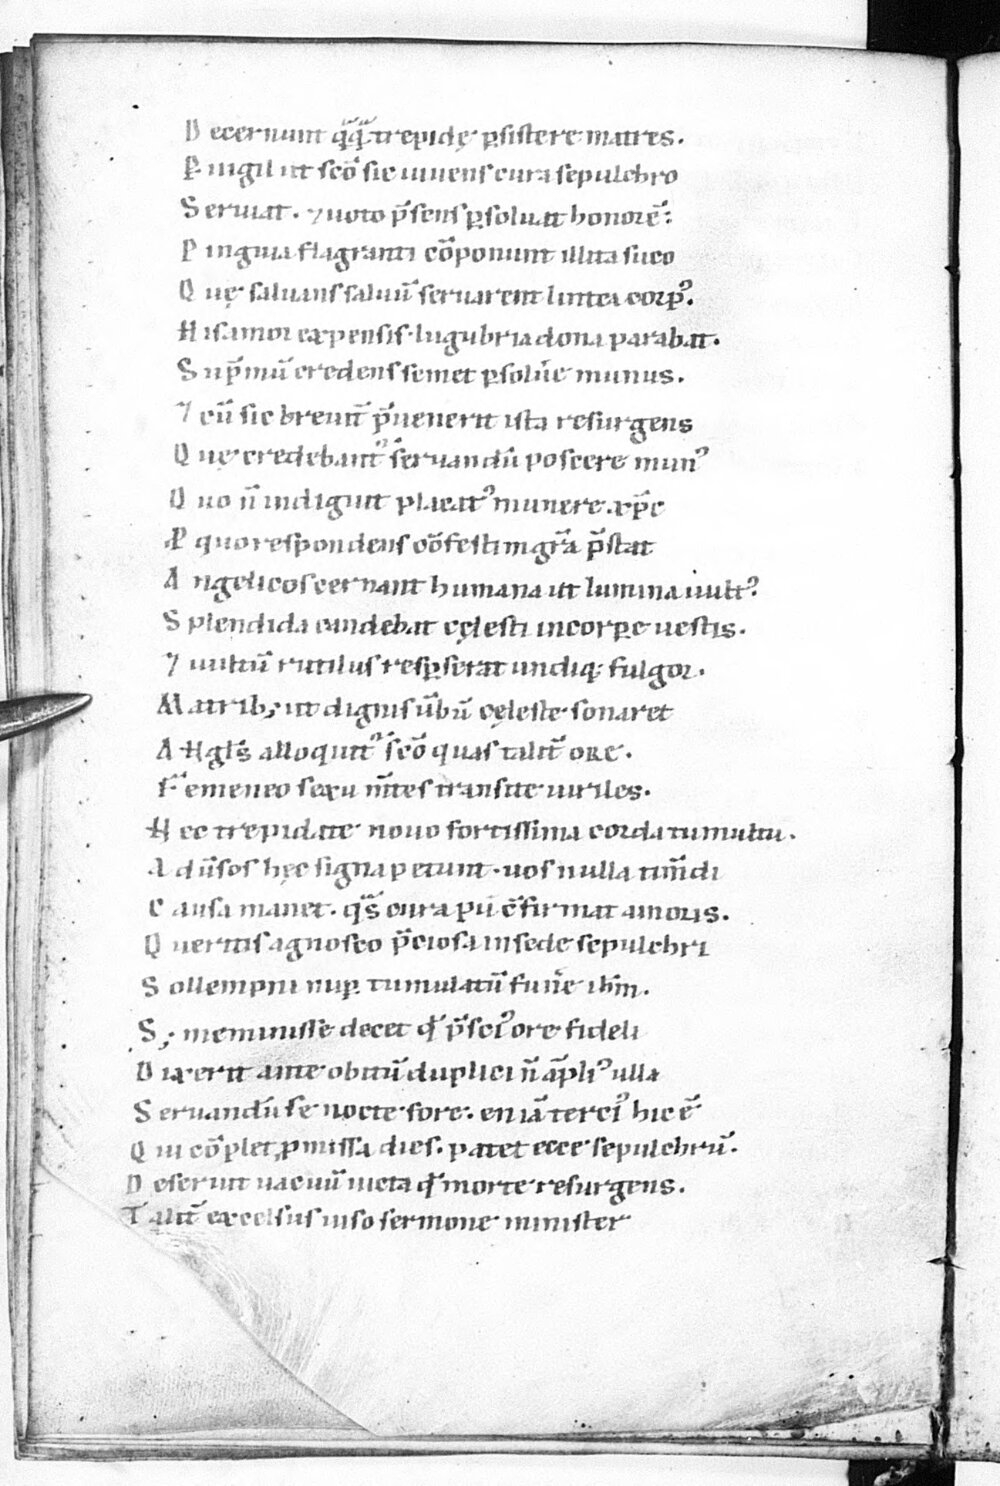 D ecernunt q̄q̄ trepidę ꝑsistere matres.
P̱ uigil ut sc̄o sic uiuens cura sepulchro
S eruiat. ⁊ uoto p̄sens ꝑsoluat honorē:
P inguia flagranti cōponunt illita suco
Q uę saluans saluū seruarent lintea corpꝰ.
H is amor expensis lugubria dona parabat.
S up̄mū credens semet ꝑsolūe munus.
⁊ cū sic breuit̄ p̄uenerit ista resurgens
Q uę credebant᷑ seruandū poscere munꝰ
Q uo n̄ indiguit placatꝰ munere xp̄c
P̱ quo respondens cōfestim gr̄a p̄stat
A ngelicos cernant humana ut lumina uultꝰ
S plendida candebat cęlesti in corꝑe uestis.
⁊ uultū rutilus resꝑserat undiq; fulgor.
M atrib; ut dignis ūbū cęleste sonaret
A Ngl̄s alloquit᷑ sc̄o quas talit̄ ore.
F emeneo sexu m̄tes transite uiriles.
N ec trepidate nouo fortissima corda tumultu.
A dūsos hęc signa petunt. uos nulla tim̄di
C ausa manet. q̄s cura pii c̄firmat amoris.
Q ueritis agnosco p̄ciosa in sede sepulchri
S ollempni nuꝑ tumulatū fun̄e ih̄m.
S ; meminisse decet qd̄ p̄sciꝰ ore fideli
D ixerit ante obitū duplici n̄ āpliꝰ ulla
S eruandū se nocte fore. en iā terciꝰ hic ē
Q ui cōplet ꝓmissa dies. patet ecce sepulchrū.
D eseruit uacuū uicta qd̄ morte resurgens.
T alit̄ excelsus iusso sermone minister